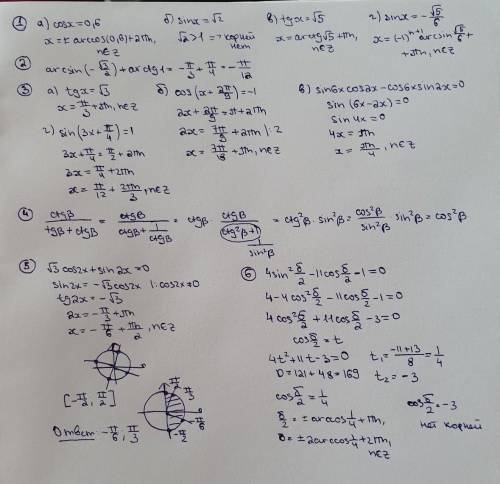 ① а) cosx=0,6
x=± arccos(0,6)+2πn, n∈Z
б) sinx=√2
√2>1 => корней нет
в) tgx=√5
x=arctg√5+πn, n∈Z
г) sinx=-√5/6
x=(-1)ⁿ⁺¹ arcsin √5/6+
+πn, n∈Z
② arcsin(-√3/2)+arctg1=-π/3+π/4=-π/12
③ а) tgx=√3
x=π/3+πn, n∈Z
б) cos(x+2π/9)=-1
2x+2π/9=π+2πn
2x=7π/9+2πn |:2
x=7π/18+πn, n∈Z
в) sin6xcos2x-cos6xsin2x=0
sin(6x-2x)=0
sin4x=0
4x=πn
x=πn/4, n∈Z
г) sin(3x+π/4)=1
3x+π/4=π/2+2πn
3x=π/4+2πn
x=π/12+2πn/3, n∈Z
④ ctgβ/(tgβ+ctgβ) = ctgβ/(ctgβ+1/ctgβ) = ctgβ·ctgβ/(ctg²β+1) = ctg²β·sin²β = cos²β/sin²β·sin²β=cos²β
1/sin²β
⑤ √3cos2x+sin2x=0
sin2x=-√3cos2x |:cos2x≠0
tg2x=-√3
2x=-π/3+πn
x=-π/6+πn/2, n∈Z
[-π/2, π/2]
π/2
π/3
-π/6
-π/2
Ответ: -π/6, π/3
⑥ 4sin²δ/2-11cosδ/2-1=0
4-4cos²δ/2-11cosδ/2-1=0
4cos²δ/2+11cosδ/2-3=0
cosδ/2=t
4t²+11t-3=0
D=121+48=169
t₁=(-11+13)/8=1/4
t₂=-3
cosδ/2=1/4
δ/2=±arccos1/4+πn,
δ=±2arccos1/4+2πn,
n∈Z
cosδ/2=-3
нет корней